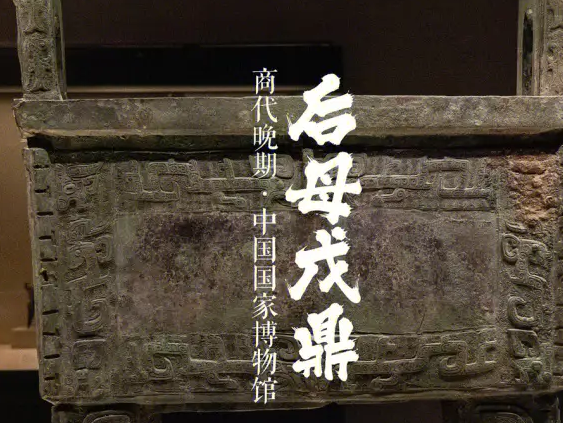 后母戊鼎
商代晚期·中国国家博物馆